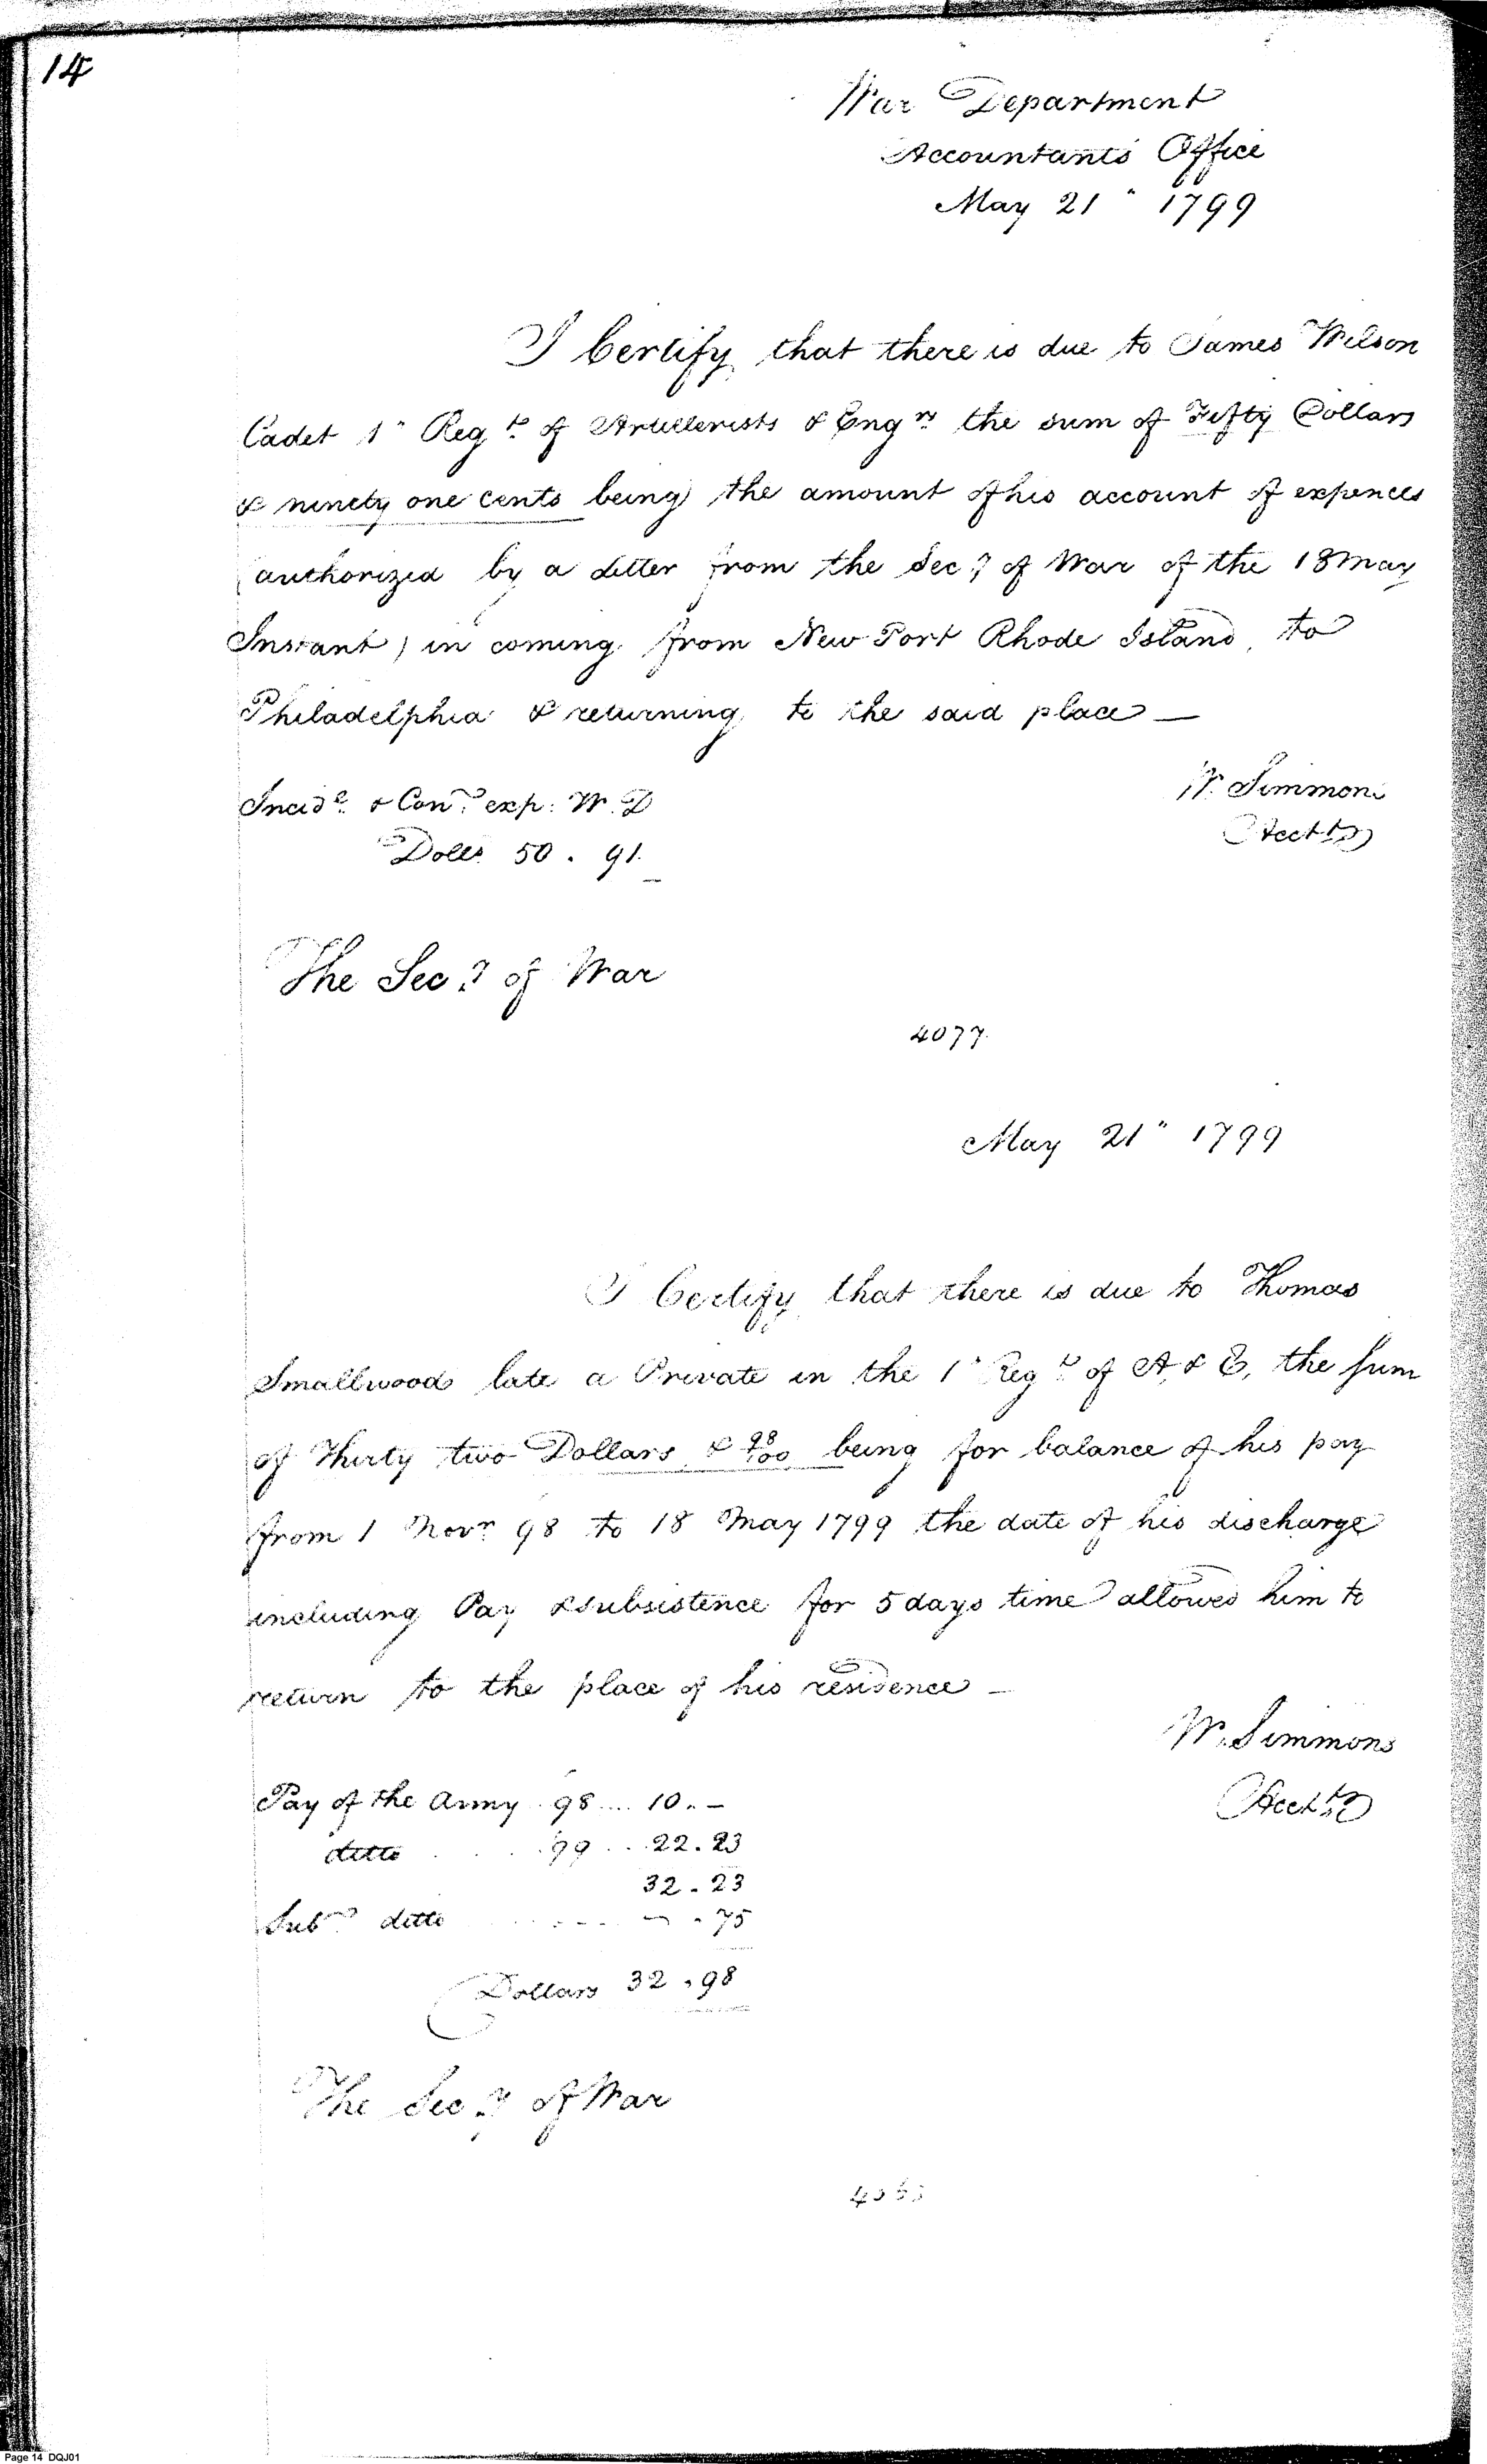 14
War Department
Accountants Office
May 21" 1799
I Certify that there is due to James Wilson
Cadet 1" Regt. of Artillerists & Engrs the sum of Fifty Dollars
& ninety one cents being the amount of his account of expences
(authorized by a letter from the Secy of War of the 18 May
Instant) in coming from New Port Rhode Island, to
Philadelphia & returning to the said place —
W. Simmons
Acct
Incidl. & Cont. exp: W. D
Dolls. 50. 91.
The Secy of War
4077.
May 21" 1799
I Certify that there is due to Thomas
Smallwood late a Private in the 1" Regt. of A, & E, the sum
of Thirty two Dollars & 98/100 being for balance of his pay
from 1 Novr 98 to 18 May 1799 the date of his discharge
including Pay & subsistence for 5 days time allowed him to
return to the place of his residence —
W. Simmons
Acct
Pay of the Army . 98 .... 10. –
ditto . . . . 99 . . . 22. 23
32. 23
Subs ditto . . . . . . – . 75
Dollars 32. 98
The Secy of War
Page 14 DQJ01